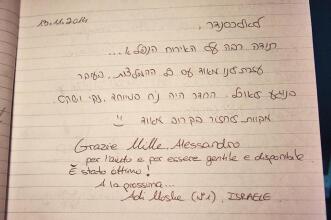 19.11.2014
לאלכסנדר,
תודה רבה על האירוח הנפלא...
עזרת לנו מאוד עם כל ההמלצות, בעיקר
בנוגע לאוכל. החדר היה נח במיוחד, נקי ושקט.
מקוות לחזור בקרוב מאוד ☺
Grazie Mille, Alessandro
per l'aiuto e per essere gentile e disponibile
È stato ottimo!
A la prossima...
Adi Moshe (n°1), ISRAELE